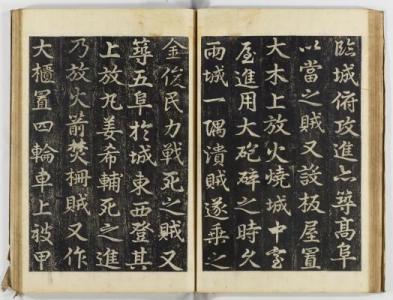 臨城俯攻進亦築高阜
以當之賊又設板屋置
大木上放火燒城中室
屋進用大砲碎之時久
雨城一隅潰賊遂乘之
金俊民力戰死之賊又
築五阜於城東西登其
上放丸姜希輔死之進
乃放火箭焚柵賊又作
大櫃置四輪車上被甲